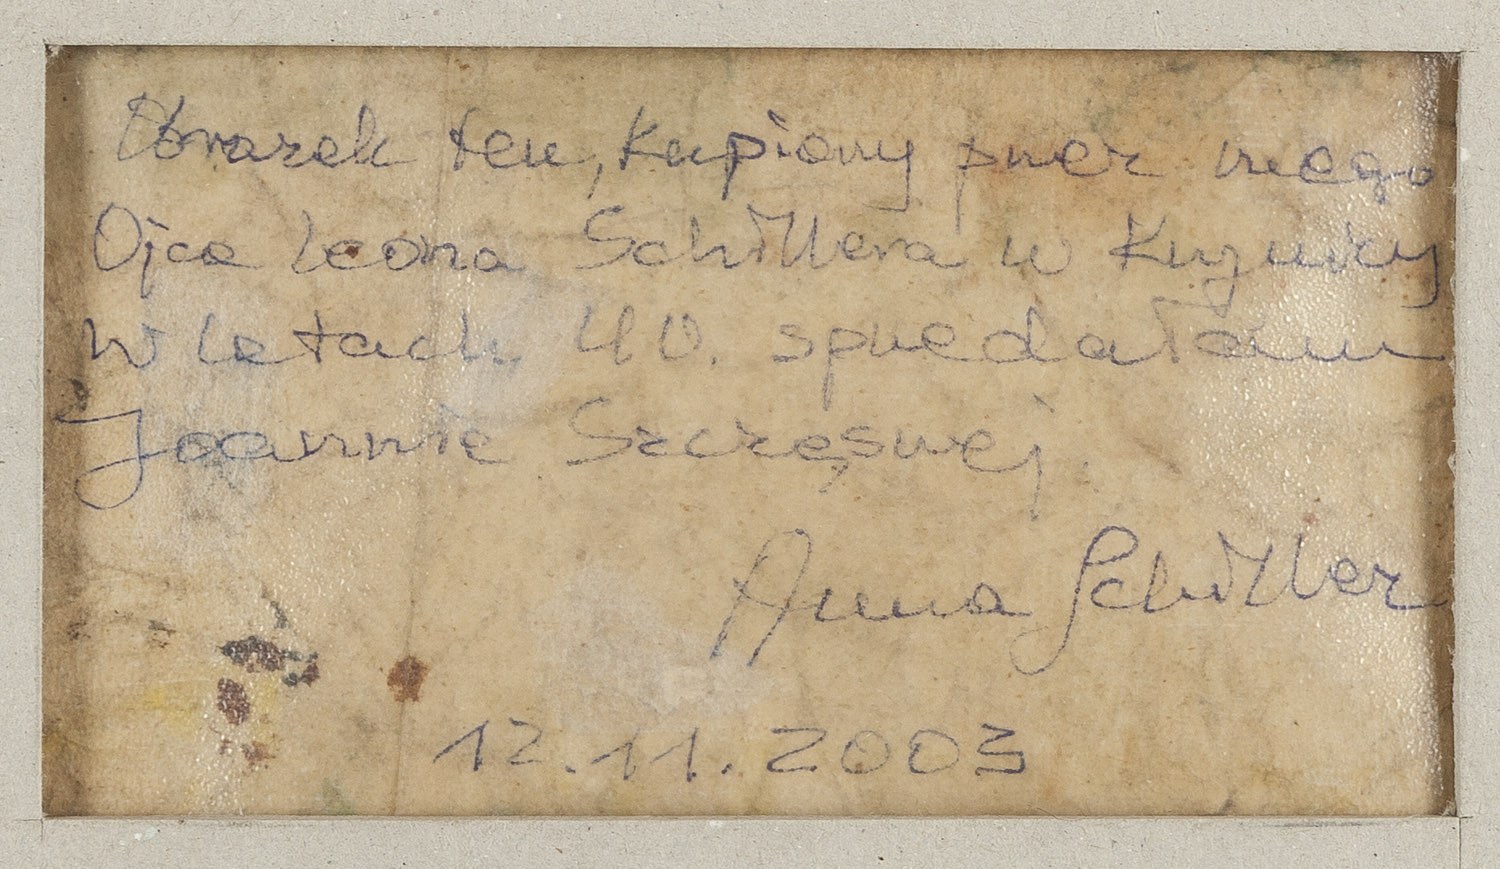 Obrazek ten, kupiony przez mego
Ojca Leona Schillera w Krynicy
w latach 40. sprzedałam
Joannie Szczęsnej.
Anna Schiller
12.11.2003